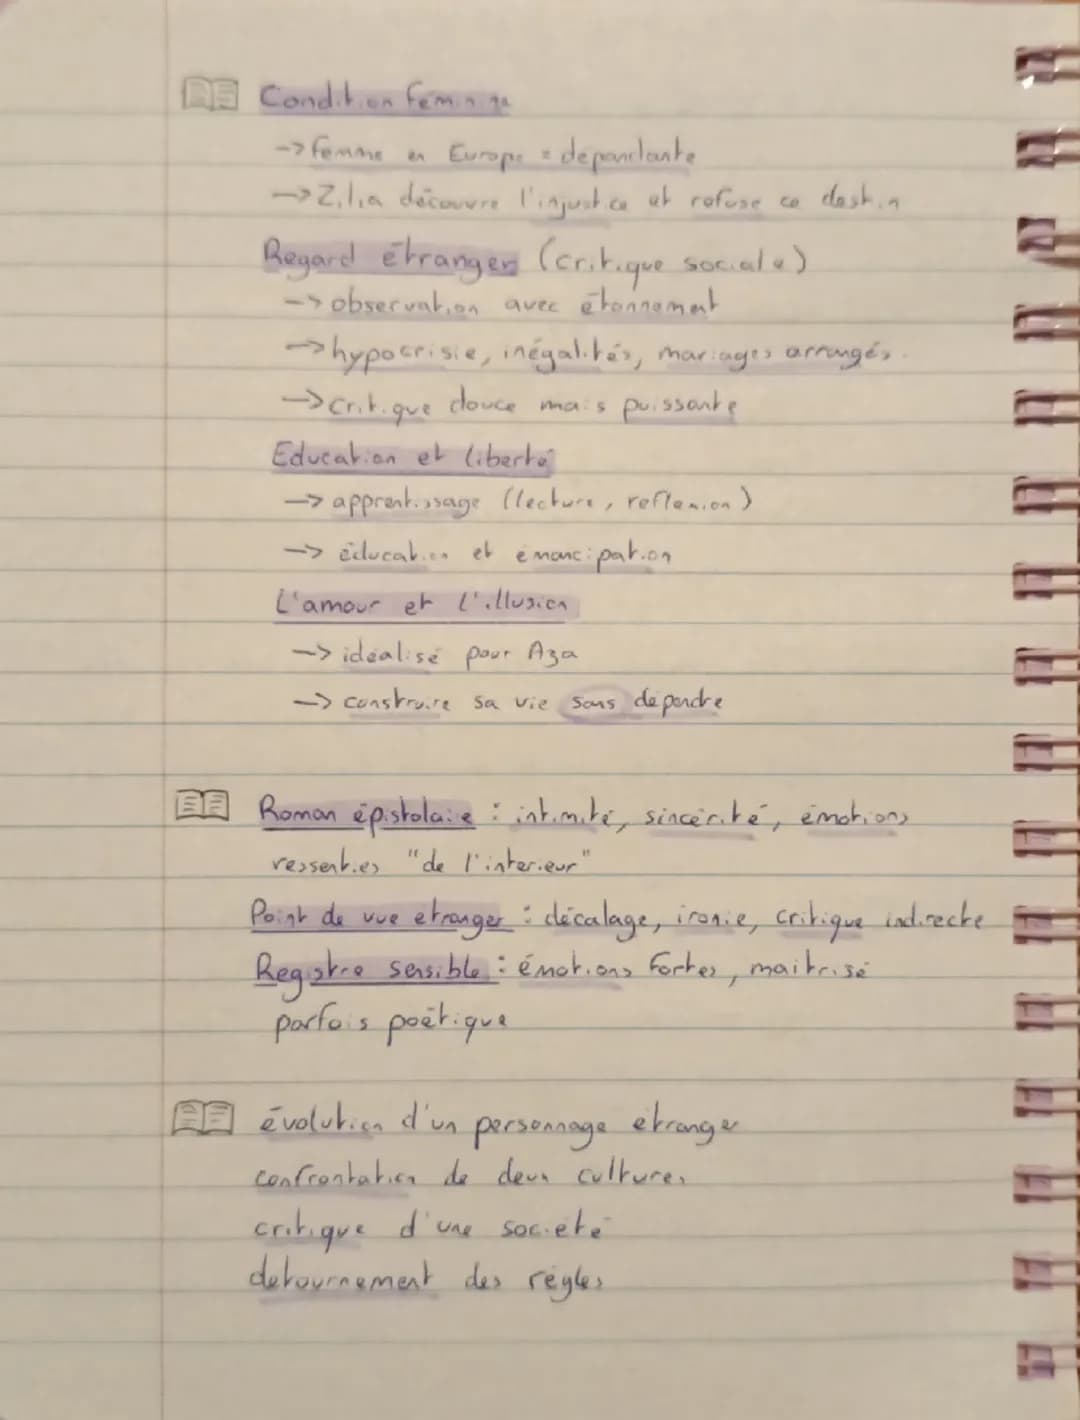 Condition féminine
-> femme en Europe = dépendante
-> Zilia découvre l'injustice et refuse ce destin
Regard étranger (critique sociale)
-> observation avec étonnement
-> hypocrisie, inégalités, mariages arrangés.
-> critique douce mais puissante
Education et liberté
-> apprentissage (lecture, reflexion)
-> éducation et émancipation
L'amour et l'illusion
-> idéalisé pour Aza
-> construire sa vie sans dépendre
Roman épistolaire : intimité, sincérité, émotions
ressenties "de l'interieur"
Point de vue etranger : décalage, ironie, critique indirecte
Registre sensible : émotions fortes, maitrisé
parfois poétique
évolution d'un personnage étranger
confrontation de deux cultures
critique d'une société
detournement des règles